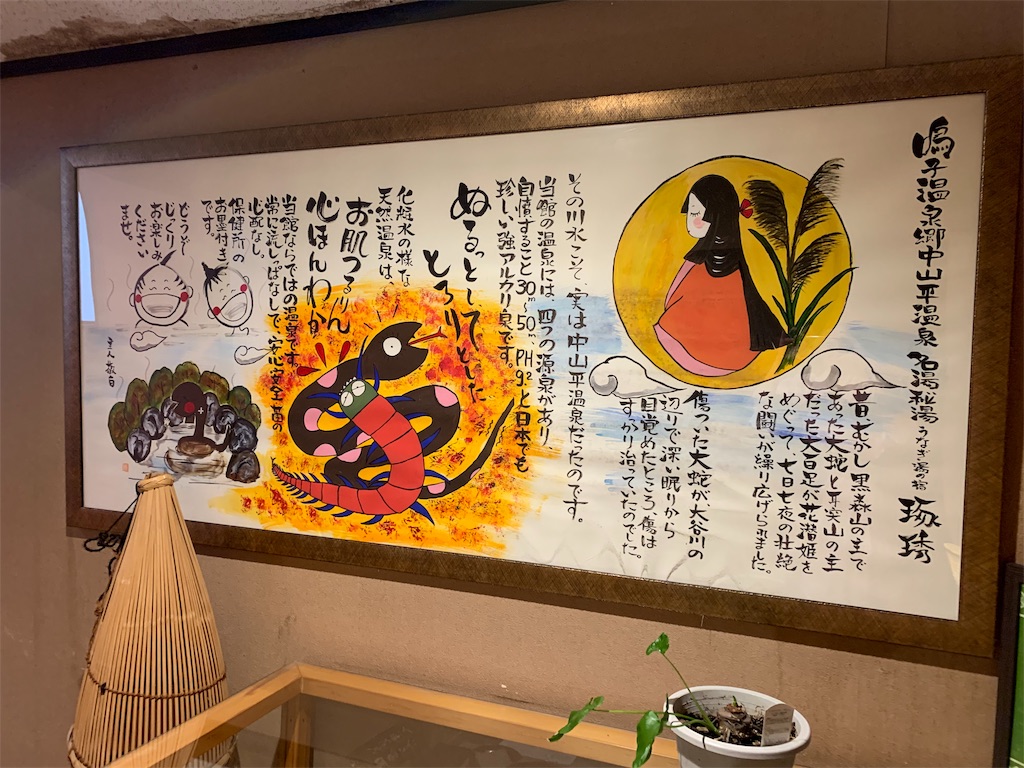 鳴子温泉郷中山平温泉 名湯秘湯 うなぎ湯の宿 琢琇
昔むかし黒森山の主で
あった大蛇と平家山の主
だった大百足が花潜姫を
めぐって、七日七夜の壮絶
な闘いが繰り広げられました。
傷ついた大蛇が大谷川の
辺りで深い眠りから
目覚めたところ、傷は
すっかり治っていたのでした。
その川水こそ実は中山平温泉だったのです。
当館の温泉には、四つの源泉があり
自憤すること30m〜50m PH9.2と日本でも
珍しい強アルカリ泉です。
ぬるっとしてとした
とろり
化粧水の様な
天然温泉は、
お肌つるりん
心ほんわか
当館ならではの温泉です。
常に流しっぱなしで、安心安全 菌の
心配なし。
保健所の
お墨付き
です。
どうぞ
じっくり
お楽しみ
ください
ませ。